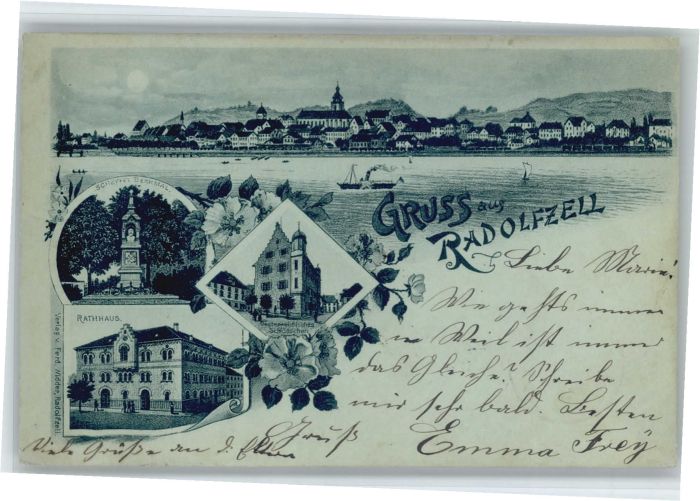 GRUSS aus
RADOLFZELL
SCHEFFEL DENKMAL.
Oesterreichisches
Schlösschen
RATHHAUS.
Verlag v. Ferd. Widder, Radolfzell
Liebe Marie!
Wie gehts immer
in Weil ist immer
das Gleiche? Schreibe
mir sehr bald. Besten
Gruß
Emma Frey
Viele Grüße an d. Eltern